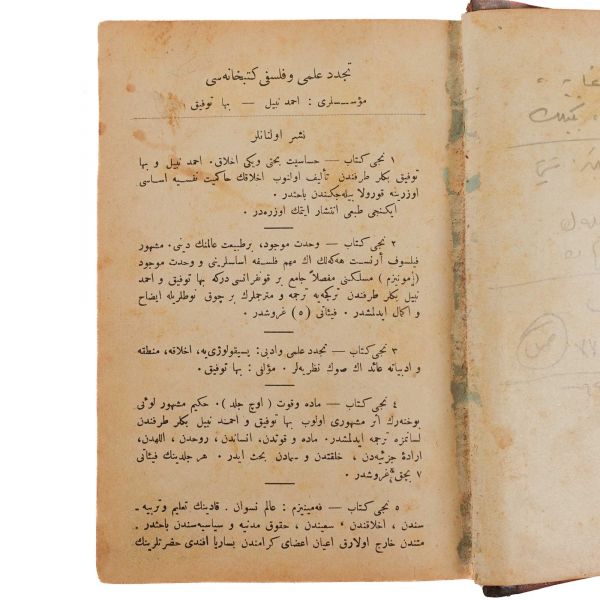 تجدد علمی و فلسفی کتبخانه‌سی
مؤسسلری : احمد نبیل — بها توفیق
نشر اولنانلر
۱ نجی کتاب — حساسیت بحثی ویکی اخلاق. احمد نبیل و بها
توفیق بکلر طرفندن تألیف اولنوب اخلاقك حاکمیت نفسیه اساسی
اوزرینه قورولا بیله‌جکندن باحثدر.
ایکنجی طبعی انتشار ایتمك اوزره‌در.
۲ نجی کتاب — وحدت موجود، بر طبیعت عالمنك دینی. مشهور
فیلسوف أرنست هه‌کل‌ك اك مهم فلسفه اساسلرینی و وحدت موجود
( مونیزم ) مسلکنی مفصلاً جامع بر قونفرانسی درکه بها توفیق و احمد
نبیل بکلر طرفندن ترکجه‌یه ترجمه و مترجملرك بر چوق نوطلریله ایضاح
و اکمال ایدلمشدر. فیئاتی (۵) غروشدر.
۳ نجی کتاب — تجدد علمی وادبی: پسیقولوژی‌یه، اخلاقه، منطقه
و ادبیاته عائد اك صوك نظریه‌لر. مؤلفی: بها توفیق.
۴ نجی کتاب — ماده وقوت ( اوچ جلد ). حکیم مشهور لوئی
بوخنه‌رك اثر مشهوری اولوب بها توفیق و احمد نبیل بکلر طرفندن
لسانمزه ترجمه ایدلمشدر. ماده و قوتدن، انساندن، روحدن، اللهدن،
ارادۀ جزئیه‌دن، خلقتدن و بحث ایدر. هر جلدینك فیئاتی
۷ بچق غروشدر.
۵ نجی کتاب — فه‌مینیزم : عالم نسوان. قادینك تعلیم وتربیه-
سندن، اخلاقندن، سعیندن، حقوق مدنیه و سیاسیه‌سندن باحثدر.
متندن خارج اولارق اعیان اعضای کرامندن بساریا افندی حضرتلرینك